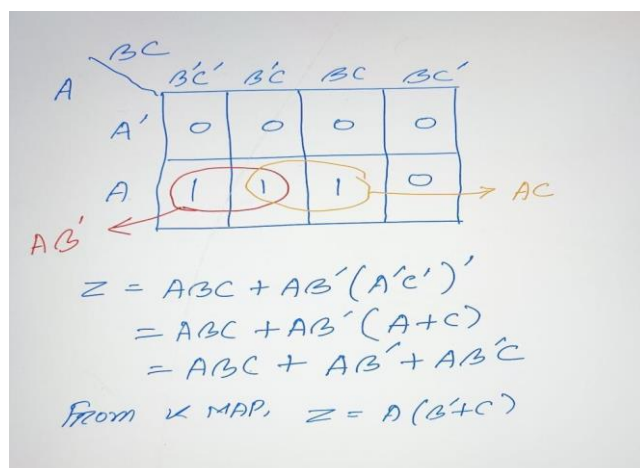 BC
A B'C' B'C BC BC'
A' 0 0 0 0
A 1 1 1 0 AC
AB'
Z = ABC + AB'(A'C')'
= ABC + AB'(A+C)
= ABC + AB' + AB'C
From K MAP, Z = A(B'+C)